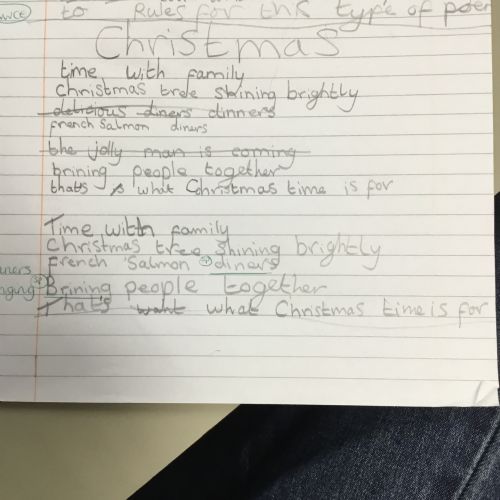 to Rules for this type of
Christmas
time with family
Christmas tree shining brightly
delicious diners dinners
french Salmon diners
the jolly man is coming
brining people together
thats what Christmas time is for
Time with family
Christmas tree shining brightly
French Salmon diners
Brining people together
That's want what Christmas time is for